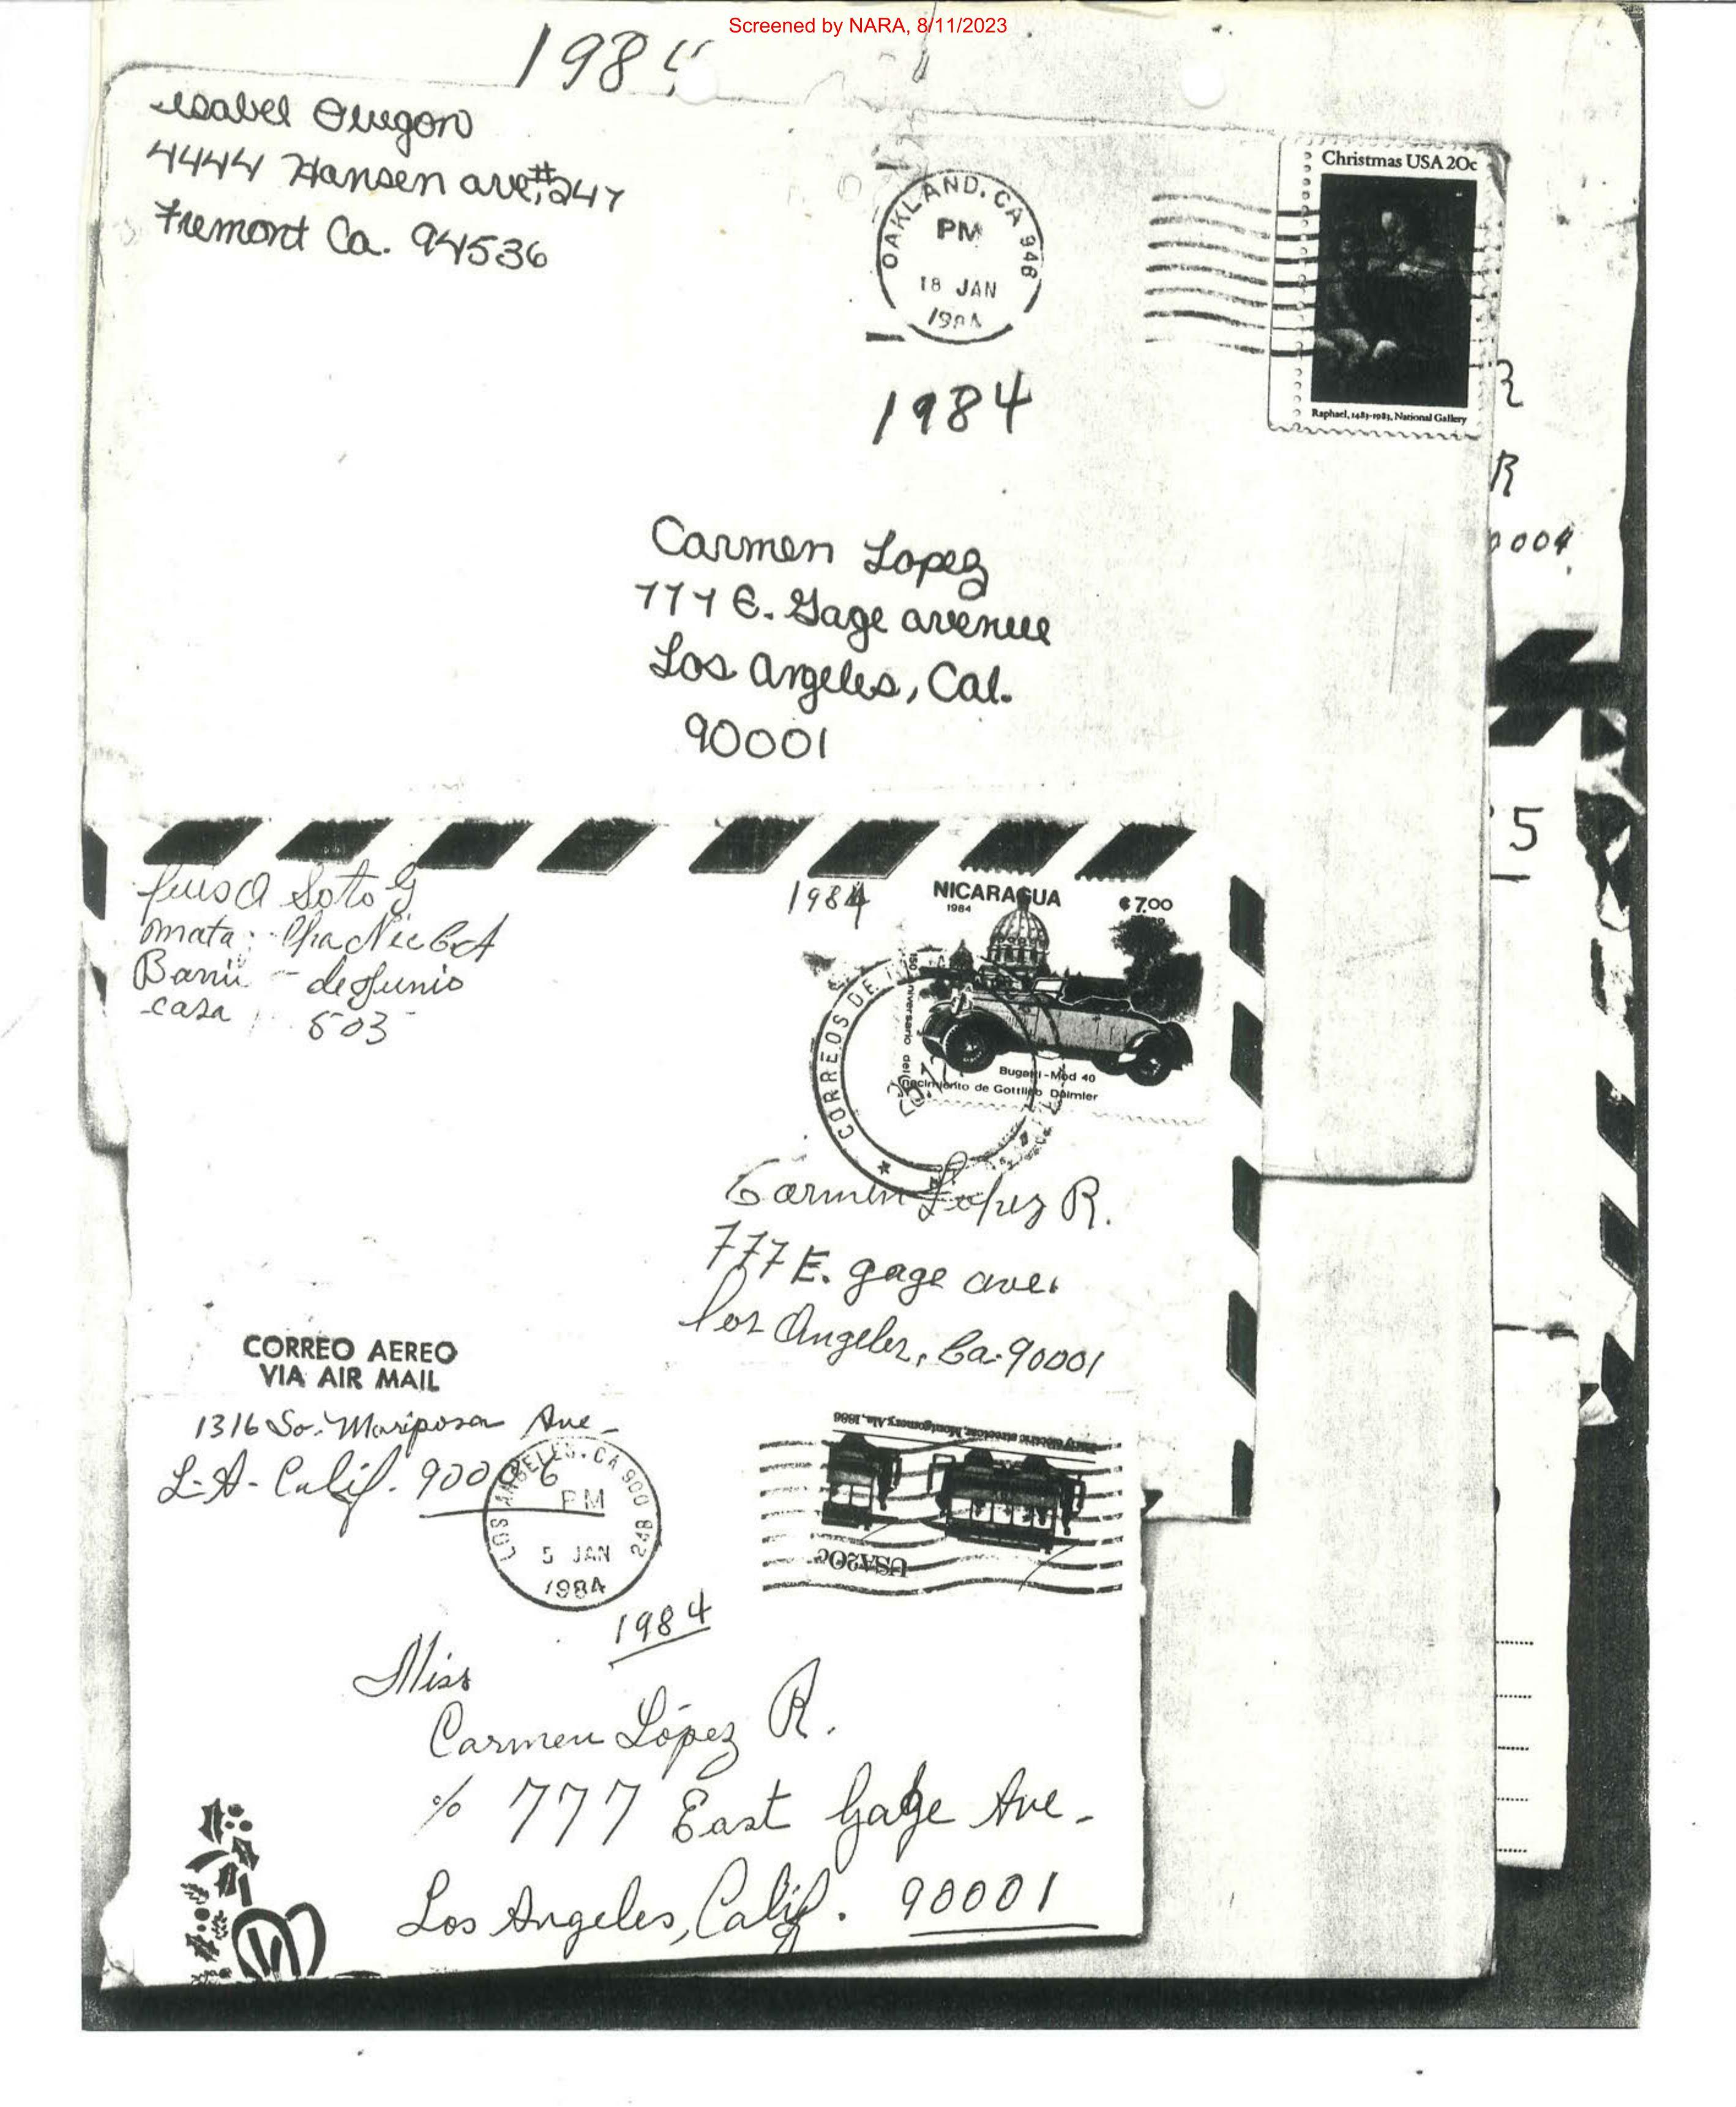 Screened by NARA, 8/11/2023
1984
Isabel Obregon
4444 Hansen ave, #247
Fremont Ca. 94536
OAKLAND, CA 946
PM
18 JAN
1984
Christmas USA 20c
Raphael, 1483-1983, National Gallery
1984
R
R
Carmen Lopez
777 E. Gage avenue
Los Angeles, Cal.
90001
5
Luisa Soto G
Casa 503
de Junio
1984
NICARAGUA
1984
₡ 7.00
CORREOS DE
Bugatti - Mod 40
150 Aniversario del
Nacimiento de Gottlieb Daimler
Carmen Lopez R.
777 E. gage ave.
Los Angeles, Ca. 90001
CORREO AEREO
VIA AIR MAIL
1316 So. Mariposa Ave -
L.A. Calif. 90006
LOS ANGELES, CA 900
PM
5 JAN
1984
Early electric streetcar, Montgomery, Ala., 1886
USA 20c
1984
Miss
Carmen López R.
% 777 East Gage Ave -
Los Angeles, Calif. 90001